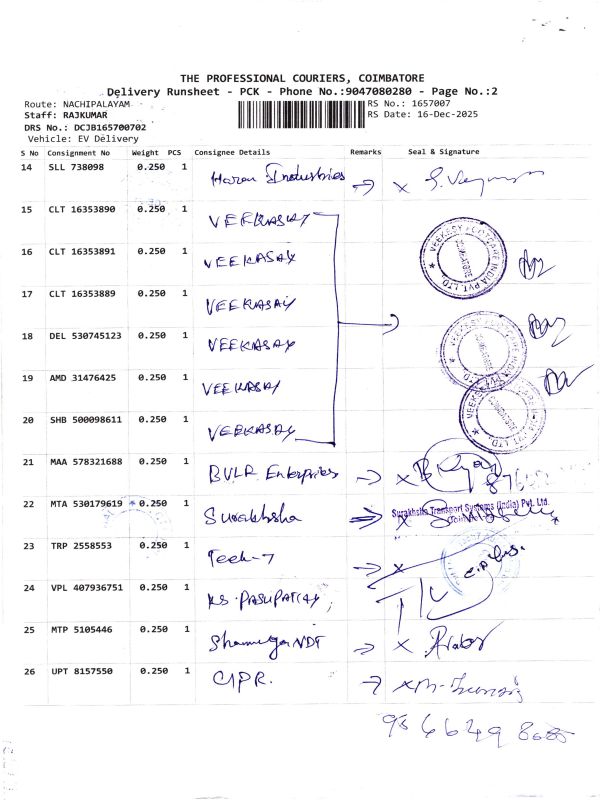 THE PROFESSIONAL COURIERS, COIMBATORE
Delivery Runsheet - PCK - Phone No.:9047080280 - Page No.:2
Route: NACHIPALAYAM RS No.: 1657007
Staff: RAJKUMAR RS Date: 16-Dec-2025
DRS No.: DCJB165700702
Vehicle: EV Delivery
S No Consignment No Weight PCS Consignee Details Remarks Seal & Signature
14 SLL 738098 0.250 1 Industries
15 CLT 16353890 0.250 1 VEEKASAY
16 CLT 16353891 0.250 1 VEEKASAY
17 CLT 16353889 0.250 1 VEEKASAY
18 DEL 530745123 0.250 1 VEEKASAY
19 AMD 31476425 0.250 1 VEEKASAY
20 SHB 500098611 0.250 1 VEEKASAY
21 MAA 578321688 0.250 1 BVLR Enterprises
22 MTA 530179619 * 0.250 1 Surakhsha Surakhsha Transport Systems (India) Pvt. Ltd.
23 TRP 2558553 0.250 1 Teek-7
24 VPL 407936751 0.250 1 KS. PASUPATHY
25 MTP 5105446 0.250 1 Shanmuga NDT
26 UPT 8157550 0.250 1 CIPR.